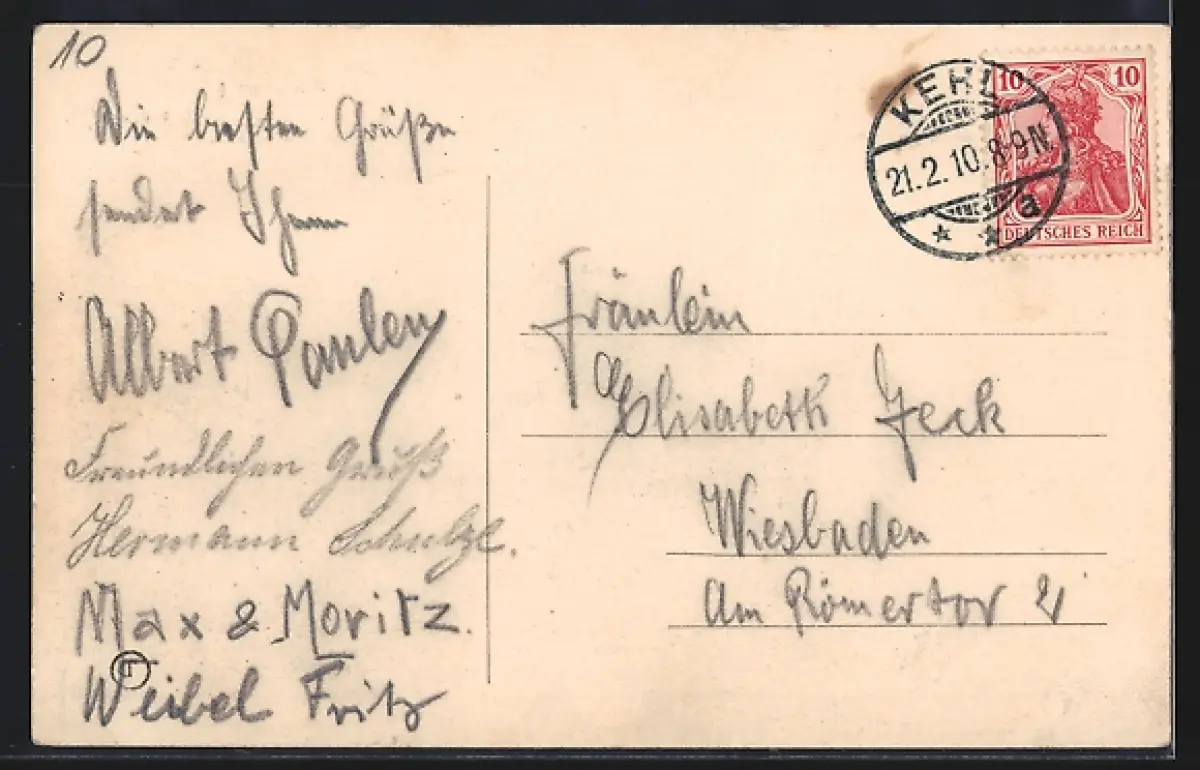 10
Die besten Grüße
sendet Ihnen
Albert Paulen
Freundlichen Gruß
Hermann Schulze.
Max & Moritz.
Weibel Fritz
KEHL
21.2.10.8-9N.
a
10 10
DEUTSCHES REICH
Fräulein
Elisabeth Jeck
Wiesbaden
Am Römertor